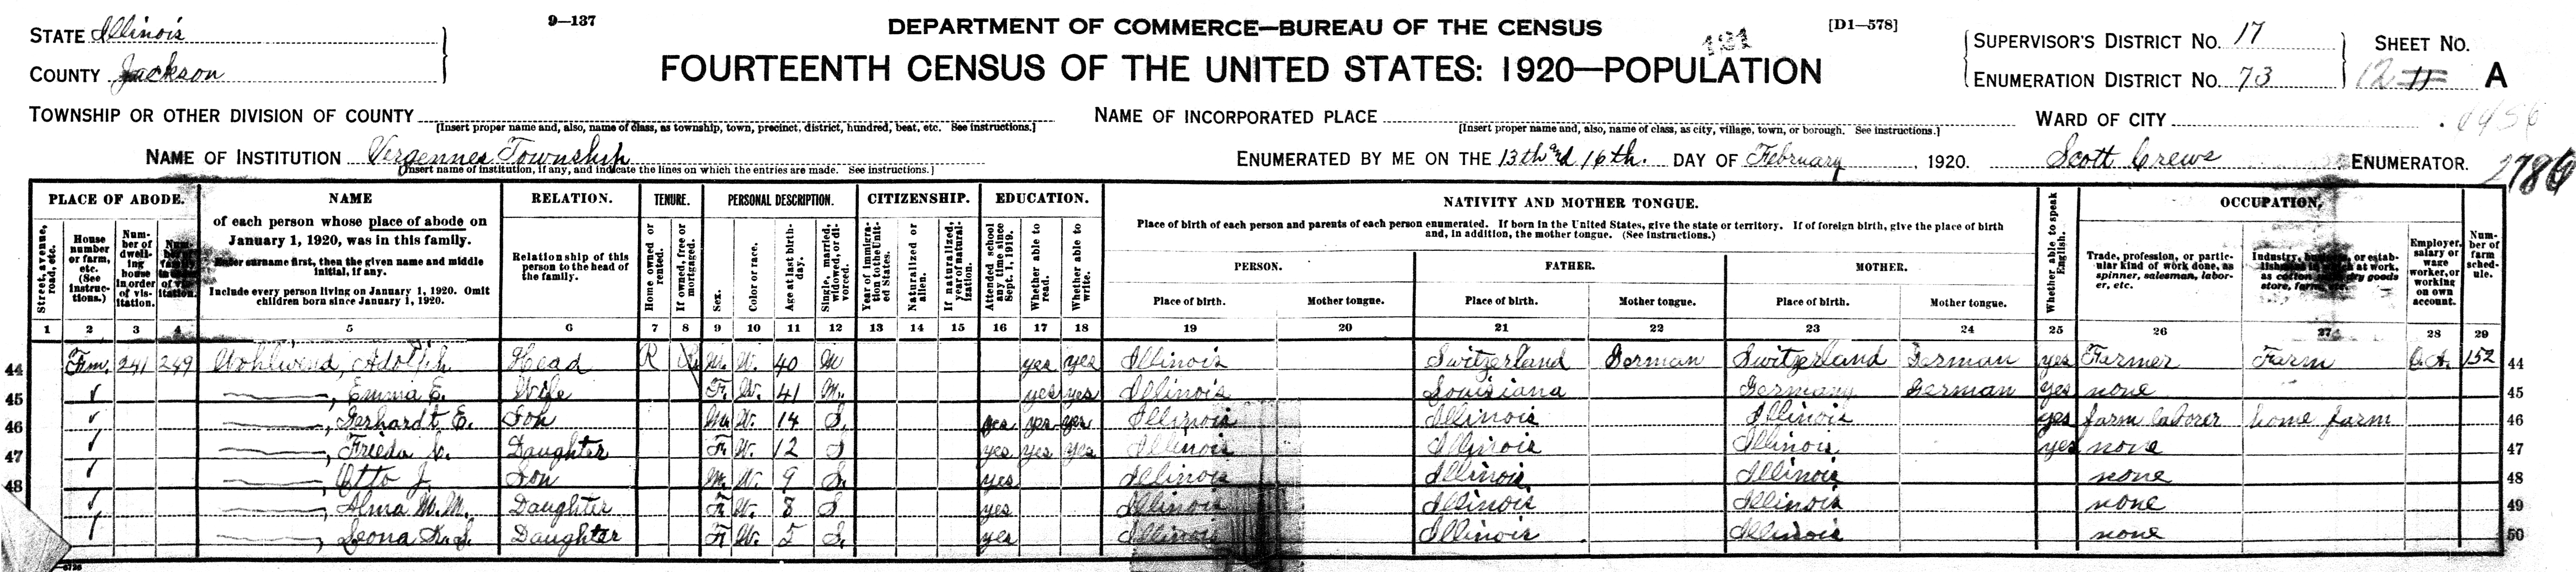 9—137
DEPARTMENT OF COMMERCE—BUREAU OF THE CENSUS
[D1—578]
STATE Illinois
COUNTY Jackson
131
FOURTEENTH CENSUS OF THE UNITED STATES: 1920—POPULATION
SUPERVISOR'S DISTRICT No. 17
ENUMERATION DISTRICT No. 73
SHEET No.
12 11 A
TOWNSHIP OR OTHER DIVISION OF COUNTY
[Insert proper name and, also, name of class, as township, town, precinct, district, hundred, beat, etc. See instructions.]
NAME OF INCORPORATED PLACE
[Insert proper name and, also, name of class, as city, village, town, or borough. See instructions.]
WARD OF CITY
NAME OF INSTITUTION Vergennes Township
[Insert name of institution, if any, and indicate the lines on which the entries are made. See instructions.]
ENUMERATED BY ME ON THE 13th and 16th. DAY OF February, 1920. Scott Crews ENUMERATOR.
PLACE OF ABODE.
Street, avenue, road, etc.
House number or farm, etc. (See instructions.)
Number of dwelling house in order of visitation.
Number of family in order of visitation.
NAME
of each person whose place of abode on
January 1, 1920, was in this family.
Enter surname first, then the given name and middle
initial, if any.
Include every person living on January 1, 1920. Omit
children born since January 1, 1920.
RELATION.
Relationship of this
person to the head of
the family.
TENURE.
Home owned or rented.
If owned, free or mortgaged.
PERSONAL DESCRIPTION.
Sex.
Color or race.
Age at last birthday.
Single, married, widowed, or divorced.
CITIZENSHIP.
Year of immigration to the United States.
Naturalized or alien.
If naturalized, year of naturalization.
EDUCATION.
Attended school any time since Sept. 1, 1919.
Whether able to read.
Whether able to write.
NATIVITY AND MOTHER TONGUE.
Place of birth of each person and parents of each person enumerated. If born in the United States, give the state or territory. If of foreign birth, give the place of birth
and, in addition, the mother tongue. (See instructions.)
PERSON. FATHER. MOTHER.
Place of birth. Mother tongue. Place of birth. Mother tongue. Place of birth. Mother tongue.
Whether able to speak English.
OCCUPATION.
Trade, profession, or particular kind of work done, as spinner, salesman, laborer, etc.
Industry, business, or establishment in which at work, as cotton mill, dry goods store, farm, etc.
Employer, salary or wage worker, or working on own account.
Number of farm schedule.
1 2 3 4 5 6 7 8 9 10 11 12 13 14 15 16 17 18 19 20 21 22 23 24 25 26 27 28 29
44 Fm. 241 249 Wohlwend, Adolph Head R M. W. 40 M yes yes Illinois Switzerland German Switzerland German yes Farmer Farm O.A. 152 44
45 ✓ ——, Emma E. Wife F. W. 41 M. yes yes Illinois Louisiana Germany German yes none 45
46 ✓ ——, Gerhardt E. Son M. W. 14 S. yes yes yes Illinois Illinois Illinois yes farm laborer home farm 46
47 ✓ ——, Frieda Daughter F. W. 12 S yes yes yes Illinois Illinois Illinois yes none 47
48 ✓ ——, Otto J. Son M. W. 9 S. yes Illinois Illinois Illinois none 48
✓ ——, Alma W. M. Daughter F. W. 8 S yes Illinois Illinois Illinois none 49
✓ ——, Leona Daughter F. W. 5 S. yes Illinois Illinois Illinois none 50